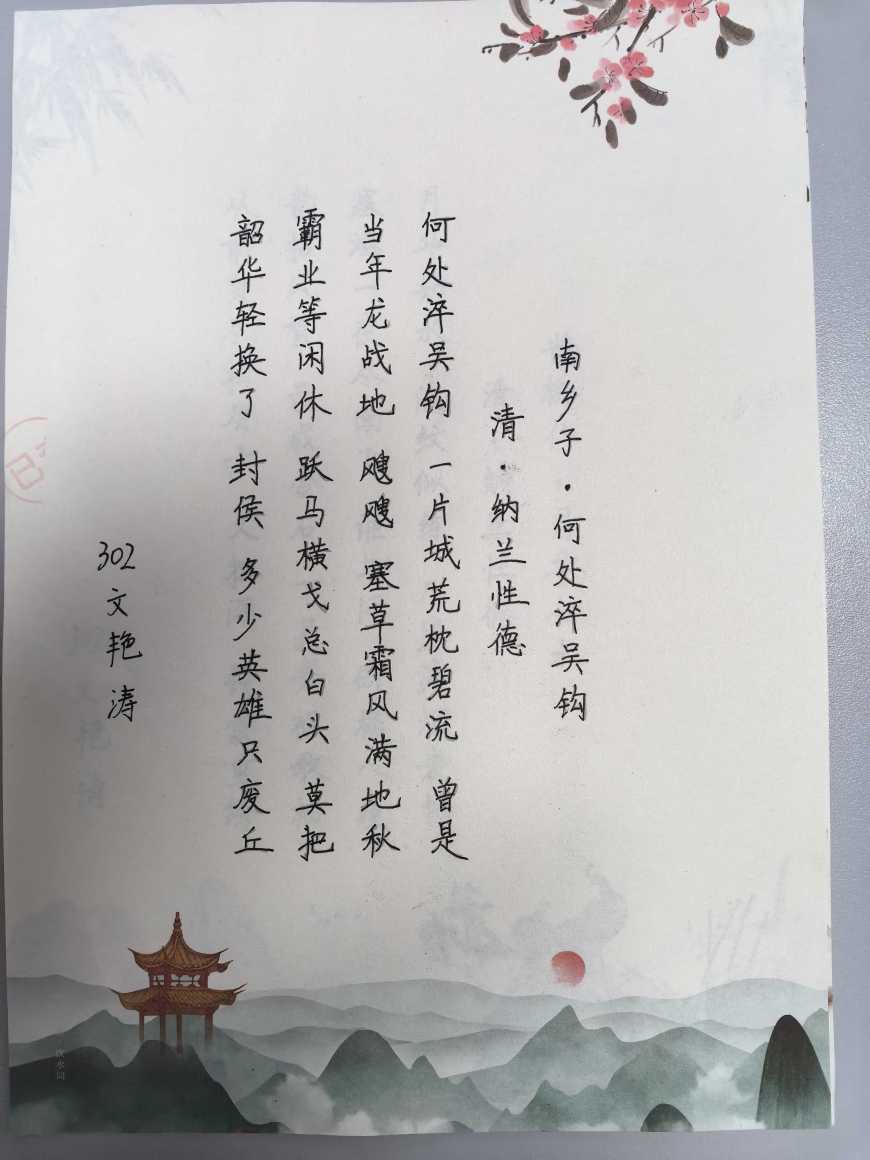 南乡子·何处淬吴钩
清·纳兰性德
何处淬吴钩 一片城荒枕碧流 曾是
当年龙战地 飕飕 塞草霜风满地秋
霸业等闲休 跃马横戈总白头 莫把
韶华轻换了 封侯 多少英雄只废丘
302文艳涛
饮水词